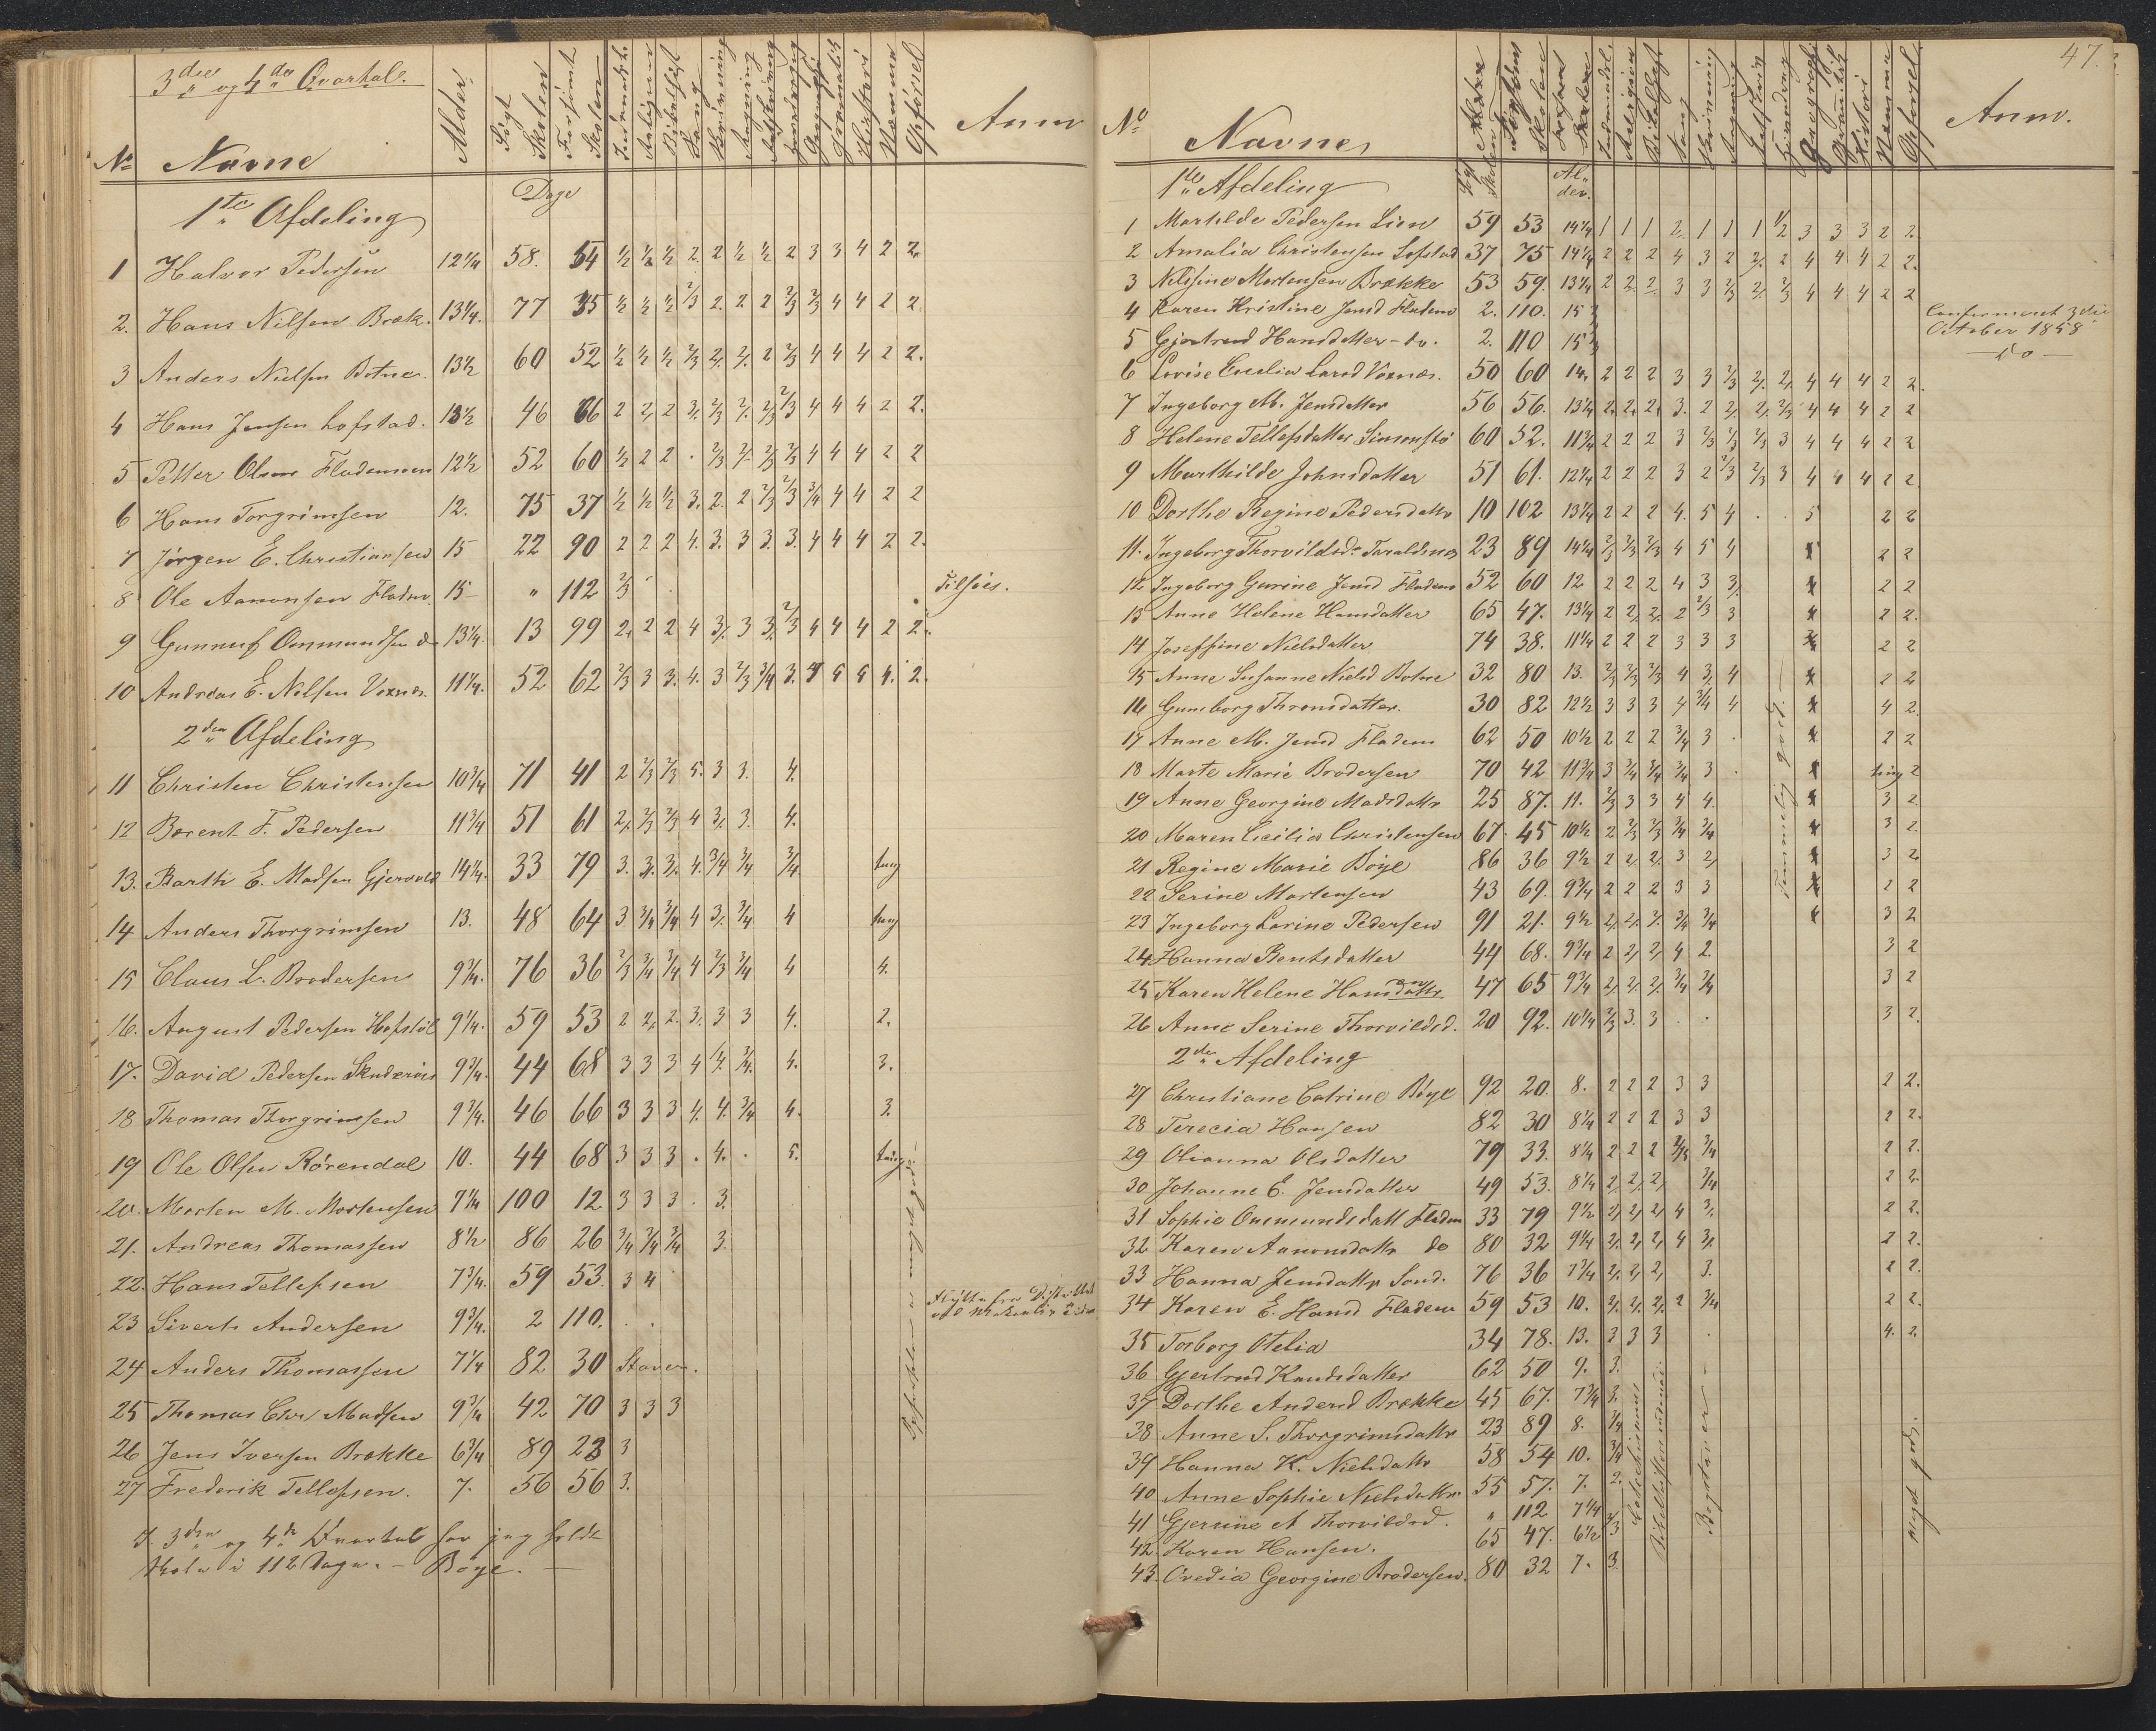 3die og 4de Qvartal.
No Navne Alder. Søgt Skolen Forsømt Skolen Religion Sang Skrivning Regning Historie Opførsel Anm
1ste Afdeling Dage
1 Halvor Pedersen 12 1/4 58. 54 1/2 1/2 1/2 2 2 1/2 1/2 2 3 3 4 2 2.
2. Hans Nilsen Bræk. 13 1/4. 77 35 1/2 1/2 1/2 2/3 2. 2 2 2/3 2/3 4 4 2 2.
3 Anders Nielsen Botne. 13 1/2 60 52 1/2 1/2 1/2 2/3 2. 2. 2 2/3 4 4 4 2 2.
4 Hans Jensen Lofstad. 13 1/2 46 66 2 2 2 3. 2/3 2. 2/3 2/3 4 4 4 2 2.
5 Petter Olsen Fladmoen 12 1/2 52 60 1/2 2 2 . 2/3 2. 2/3 2/3 4 4 4 2 2
6 Hans Torgrimsen 12. 75 37 1/2 1/2 1/2 3. 2. 2 2/3 2/3 3/4 4 4 2 2
7 Jørgen E. Christiansen 15 22 90 2 2 2 4. 3. 3 3. 3. 4 4 4 2 2.
8 Ole Aamonsen Fladm. 15 - " 112 2/3 Tilsøes.
9 Gunnuf Ommundsen do 13 1/4. 13 99 2. 2 2 4 3. 3 3. 2/3 4 4 4 2 2.
10 Andreas E. Nilsen Voxnæs. 11 1/4. 52 62 2/3 3 3. 4. 3 2/3 3/4 3. 4 4 4 4. 2.
2den Afdeling
11 Christen Christensen 10 3/4 71 41 2 2/3 2/3 5. 3 3. 4.
12 Berent F. Pedersen 11 3/4 51 61 2. 2/3 2/3 4 3. 3. 4.
13. Barthi E. Madsen Gjerovld 14 1/4. 33 79 3. 3. 3. 4. 3/4 3/4 3/4. tung
14 Anders Thorgrimsen 13. 48 64 3 3/4 3/4 4 3. 3/4 4 tung
15 Claus L. Brodersen 9 3/4. 76 36 2/3 3/4 3/4 4 2/3 3/4 4 4.
16. August Pedersen Hofstøl 9 1/4. 59 53 2 2. 2. 3. 3 3 4. 2.
17. David Pedersen Skuderøis 9 3/4. 44 68 3 3 3 4 4. 3/4. 4. 3.
18 Thomas Thorgrimsen 9 3/4. 46 66 3 3 3 4. 4. 3/4 4. 3.
19 Ole Olsen Rørendal 10. 44 68 3 3 3 . 4. . 5. tung
20. Morten M. Mortensen 7 1/4 100 12 3 3 3 . 3.
21. Andreas Thomassen 8 1/2 86 26 3/4 3/4 3/4 3.
22. Hans Tellefsen 7 3/4. 59 53. 3 4
23 Siverts Andersen 9 3/4. 2 110. . . Flytte fra Distriktet
24 Anders Thomassen 7 1/4 82 30 Staver.
25 Thomas Chr Madsen 9 3/4 42 70 3 3 3
26 Jens Iversen Brække 6 3/4 89 23 3
27 Frederik Tellefsen. 7. 56 56 3.
Opførselen er meget god.
I 3die og 4de Qvartal har jeg holdt
Skole i 112 Dage. - Bøye.
47.
No Navne Søgt Skolen Forsømt Skolen Religion Sang Skrivning Regning Geografi Historie Opførsel Anm.
1ste Afdeling Al- der.
1 Marthilde Pedersen Lien 59 53 14 1/4 1 1 1 2. 1 1 1 1/2 3 3 3 2 2.
2 Amalia Christensen Lofstad 37 75 14 1/4 2 2 2 4 3 2 2. 2 4 4 4 2 2.
3 Nilsine Mortensen Brække 53 59. 13 1/4 2 2. 2. 3 3 2/3 2. 2/3 4 4 4 2 2
4 Karen Kristine Jensd Fladm 2. 110. 15 Confirmeret 3die
October 1858
5 Gjertrud Hansdatter - do. 2. 110 15 - do -
6 Lovise Cecilia Larsd Voxnæs. 50 60 14. 2 2 2 3 3 2/3 2. 2. 4 4 4 2 2.
7 Ingeborg M. Jensdatter 56 56. 13 1/4 2. 2. 2. 3. 2 2. 2. 2/3 4 4 4 2 2
8 Helene Tellefsdatter Simonstø 60 52. 11 3/4 2 2 2 3 2/3 2/3 2/3 3 4 4 4 2 2
9 Marthilde Johnsdatter 51 61. 12 1/4 2 2 2 3 2 2/3 2/3 3 4 4 4 2 2
10 Dorthe Regine Pedersdattr 10 102 13 1/4 2 2 2 4. 5 4 . . 5 2 2
11. Ingeborg Thorvildsd. Taraldsnes 23 89 14 1/4 2/3 2/3 2/3 4 5 4 5 2 2
12 Ingeborg Gurine Jensd Fladmo 52 60 12 2 2 2 4 3 3. 4 2 2
13 Anne Helene Hansdatter 65 47. 13 1/4 2 2. 2. 2 2/3 3 4 2 2.
14 Josephine Nielsdatter 74 38. 11 1/4 2 2 2 3 3 3 2 2
15 Anne Susanne Nielsd Botne 32 80 13. 2/3 2/3 2/3 4 3. 4 4 2 2
16 Guneborg Thronsdatter. 30 82 12 1/2 3 3 3 4 3/4 4 4 4 2.
17 Anne M. Jensd Fladem 62 50 10 1/2 2 2 2 3/4 3 . 4 2 2
18 Marte Marie Brodersen 70 42 11 3/4 3 3/4 3/4 3/4 3 . 4 tung 2
19 Anne Georgine Madsdattr 25 87. 11. 2/3 3 3 4 4. 4 3 2.
20 Maren Cecilia Christensen 67. 45 10 1/2 2 2/3 2/3 3/4 3/4 4 3 2.
21 Regine Marie Bøye 86 36 9 1/2 2 2. 2. 3 2. 4 3 2
22 Serine Martensen 43 69. 9 3/4 2 2 2 3 3 4 2 2
23 Ingeborg Larine Pedersen 91 21. 9 1/2 2. 2. 2. 3/4 3/4 4 3 2
24 Hanna Bentsdatter 44 68. 9 3/4 2 2. 2. 4 2. 3 2
25 Karen Helene Hansdattr. 47 65 9 3/4 2. 2. 2. 3/4 3/4 3 2
26 Anne Serine Thorvildsd. 20 92. 10 1/4 2/3 3. 3 . . 3 2.
Temmelig godt.
2den Afdeling
27 Christiane Catrine Bøye 92 20. 8. 2 2 2 3 3 2 2.
28 Terecia Hansen 82 30 8 1/4 2 2 2 3 3 2 2.
29 Olianna Olsdatter 79 33. 8 1/4 2 2 2 3/4 2 2.
30 Johanne E. Jensdatter 49 53. 8 1/4 2. 2. 2. 3/4 2 2.
31 Sophie Ommundsdatt Fladm 33 79 9 1/2 2. 2. 2. 4 3. 2 2.
32 Karen Aanonsdattr do 80 32 9 1/4 2. 2. 2. 4 3. 2 2.
33 Hanna Jensdattr Sond. 76 36 7 3/4 2. 2. 2. 3. 2 2.
34 Karen E. Hansd Fladem 59 53 10. 2. 2. 2. 2 3/4 2 2.
35 Torborg Otelia 34 78. 13. 3 3 3 . 4. 2
36 Gjertrud Knudsdatter 62 50 9. 3.
37 Dorthe Andersd Brække 45 67. 7 3/4 3.
38 Anne S. Thorgrimsdattr 23 89 8. 3/4
39 Hanna K. Nielsdattr 58 54 10. 3/4
40 Anne Sophie Nielsdattr. 55 57. 7. 2.
41 Gjersine A Thorvildsd. " 112 7 1/4
42. Karen Hansen. 65 47. 6 1/2 2/3
43. Ovedia Georgine Brodersen. 80 32 7. 3.
Catechismus
Bogstaver -
meget god.